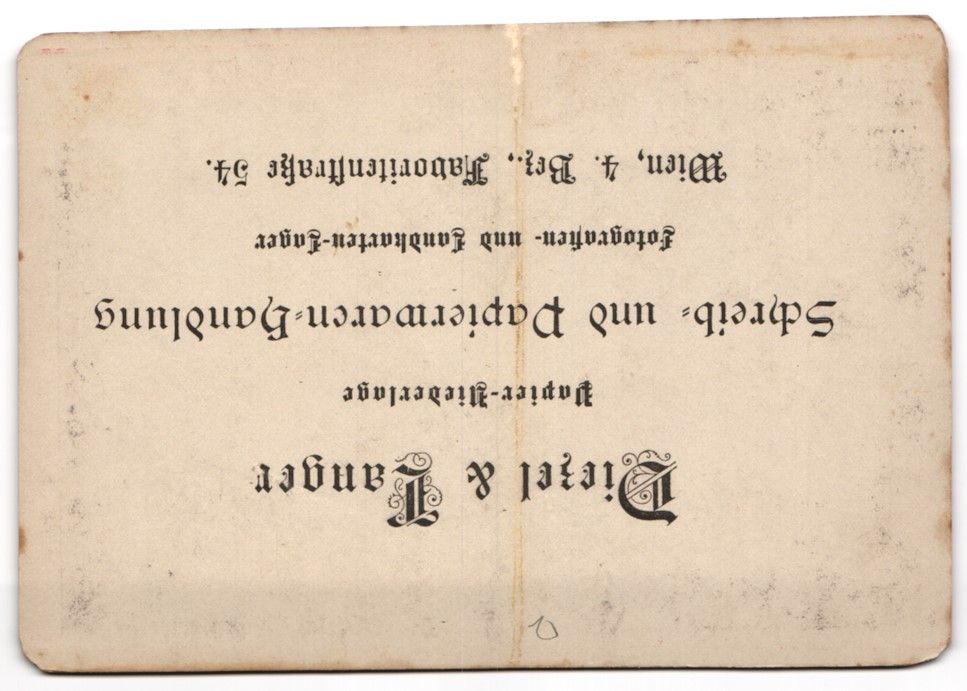 Diezel & Langer
Papier-Niederlage
Schreib- und Papierwaren-Handlung
Fotografien- und Landkarten-Lager
Wien, 4. Bez., Favoritenstraße 54.